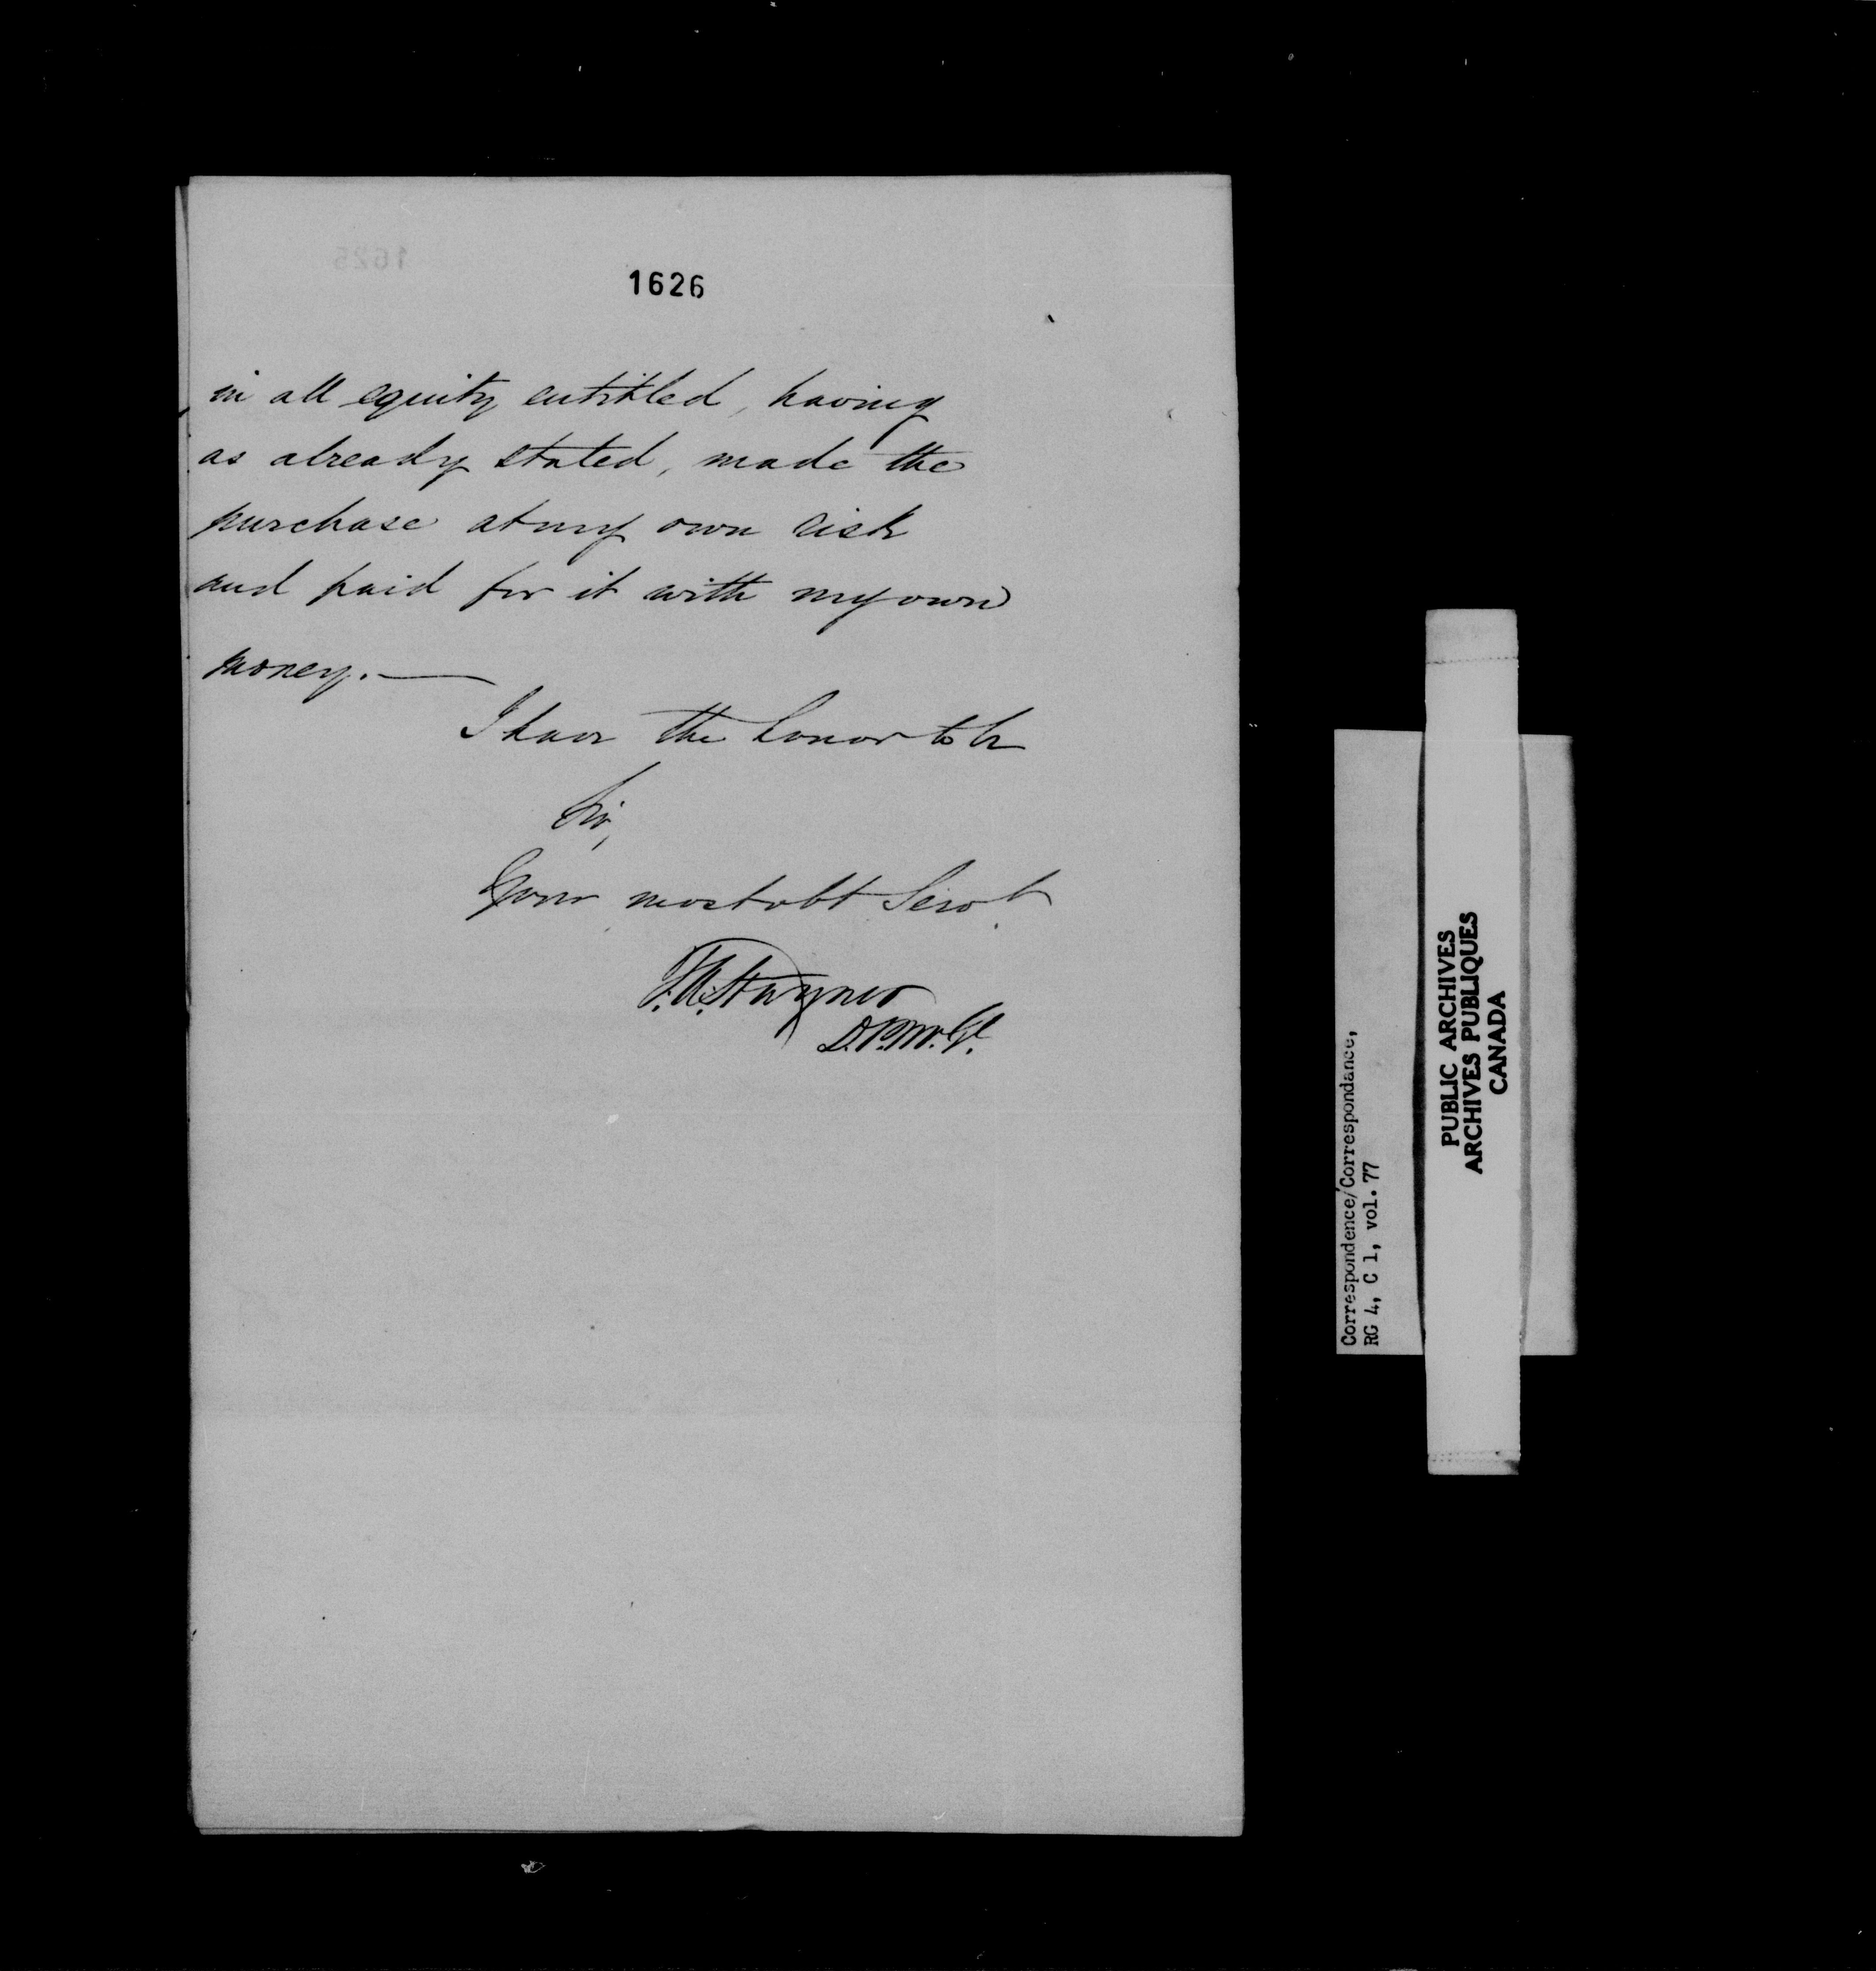 1626
in all equity entitled, having
as already stated, made the
purchase at my own risk
and paid for it with my own
money. —
I have the honor to be
Sir,
Your most obt Servt.
T.A. Stayner
D.P.M.Gl.
Correspondence/Correspondance,
RG 4, C 1, vol. 77
PUBLIC ARCHIVES
ARCHIVES PUBLIQUES
CANADA